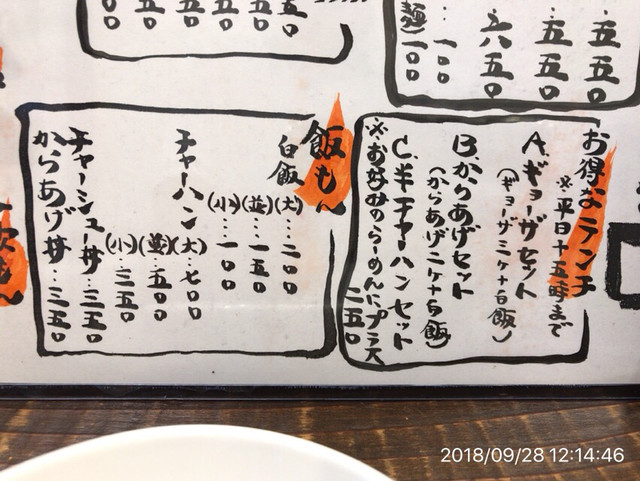 五五〇
五五〇
六五〇
麺 一〇〇
お得なランチ
※平日十五時まで
A.ギョーザセット
(ギョーザ三ケ+白飯)
B.からあげセット
(からあげ二ケ+白飯)
C.半チャーハンセット
※お好みのらーめんにプラス
二五〇
飯もん
白飯
(大)…二〇〇
(並)…一五〇
(小)…一〇〇
チャーハン
(大)…七〇〇
(並)…五〇〇
(小)…三五〇
チャーシュー丼…三五〇
からあげ丼…三五〇
2018/09/28 12:14:46